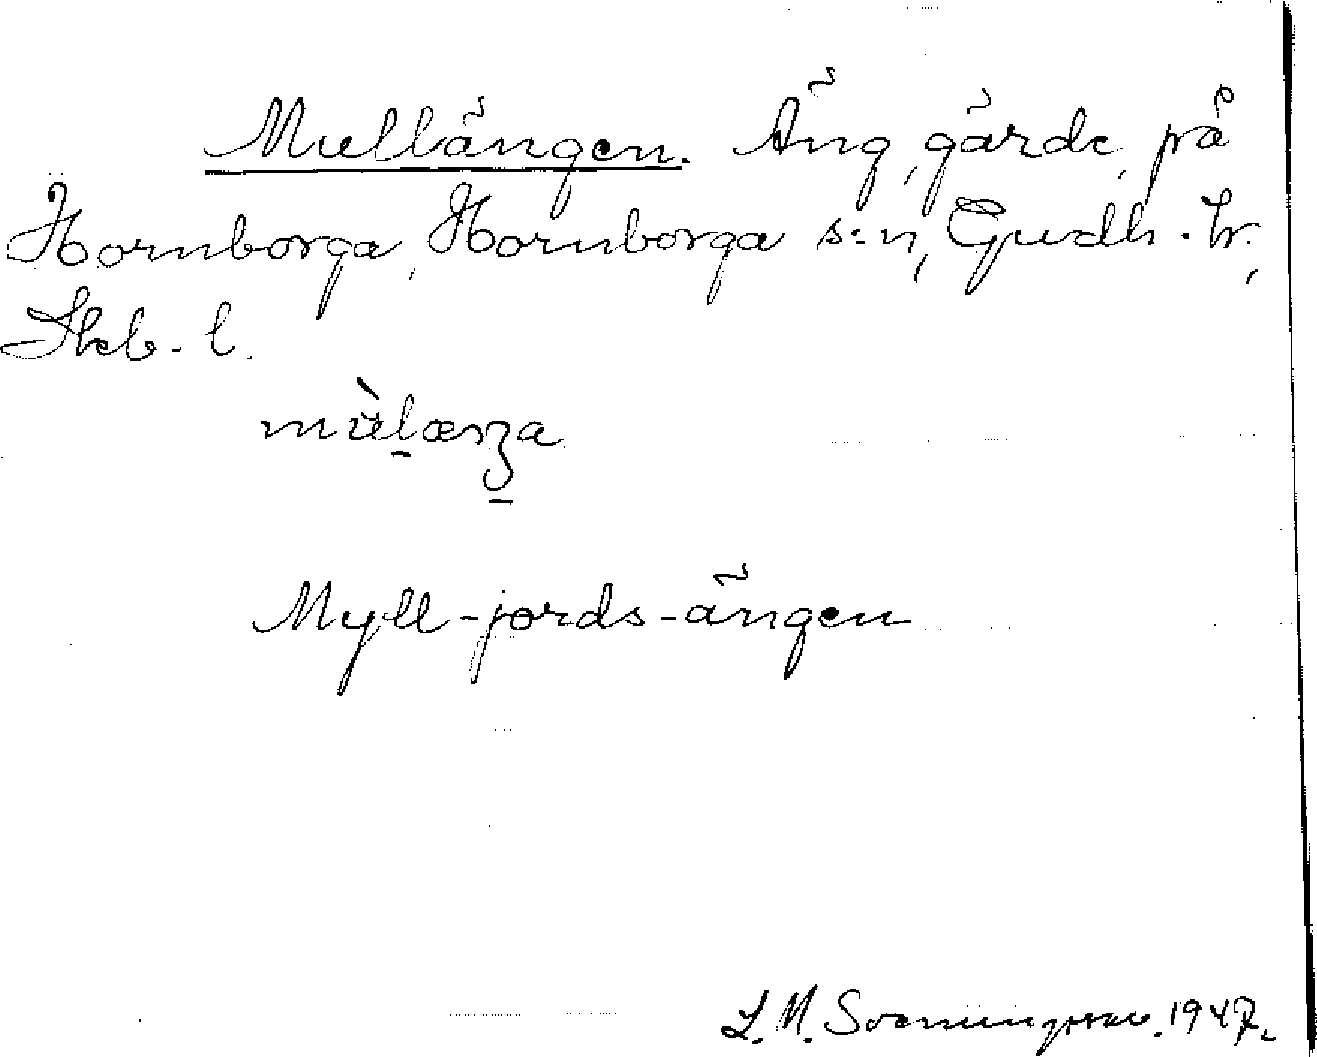 Mullängen. Äng, gärde, på
Hornborga, Hornborga s:n, Gudh. hr,
Skb. l.
mùlæŋa
Myll-jords-ängen
L. M. Svenningsson. 1947.